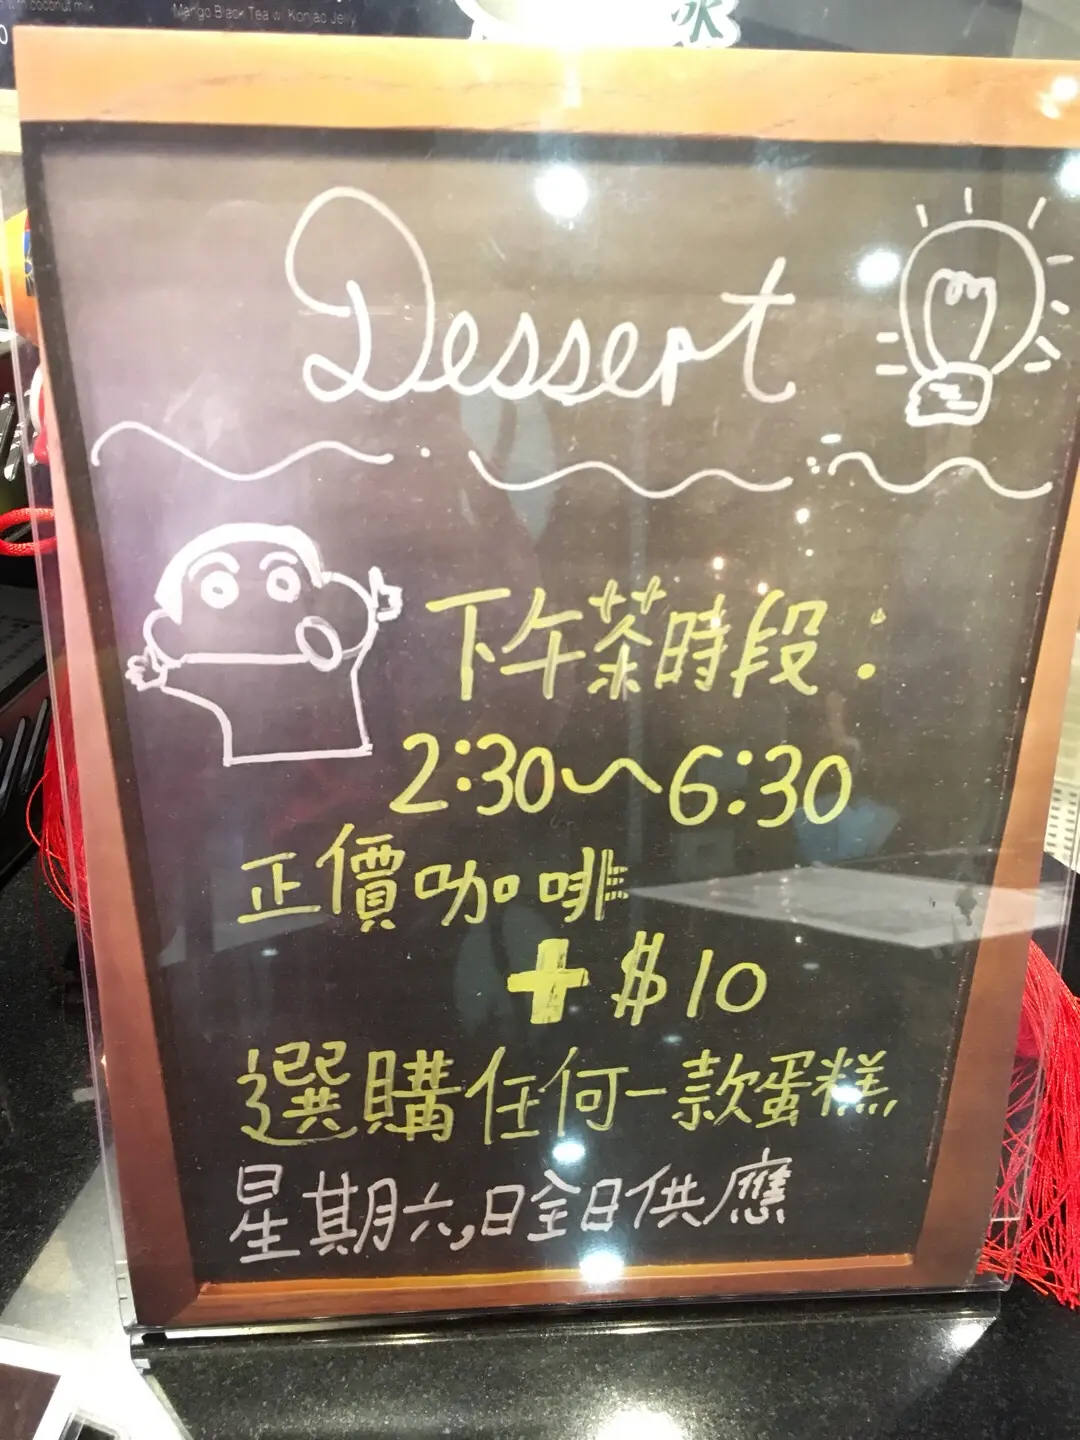 coconut milk
Mango Black Tea w/ Konjao Jelly
Dessert
下午茶時段：
2:30～6:30
正價咖啡
+ $10
選購任何一款蛋糕
星期六,日全日供應